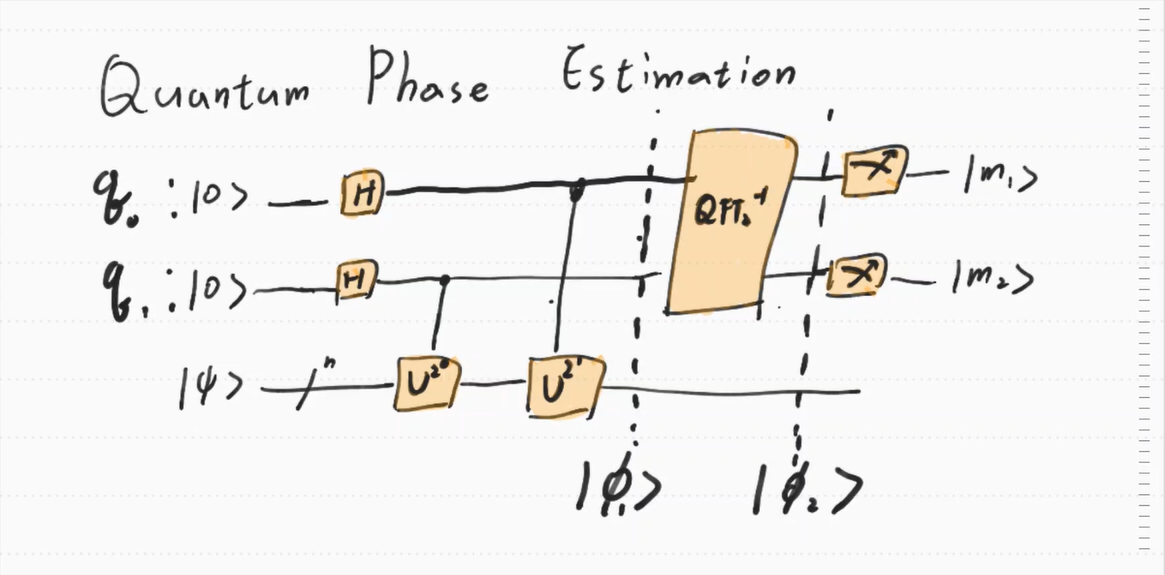 Quantum Phase Estimation
q₀ : |0> H QFT₂⁻¹ |m₁>
q₁ : |0> H |m₂>
|ψ> n U²⁰ U²¹
|ϕ₁> |ϕ₂>